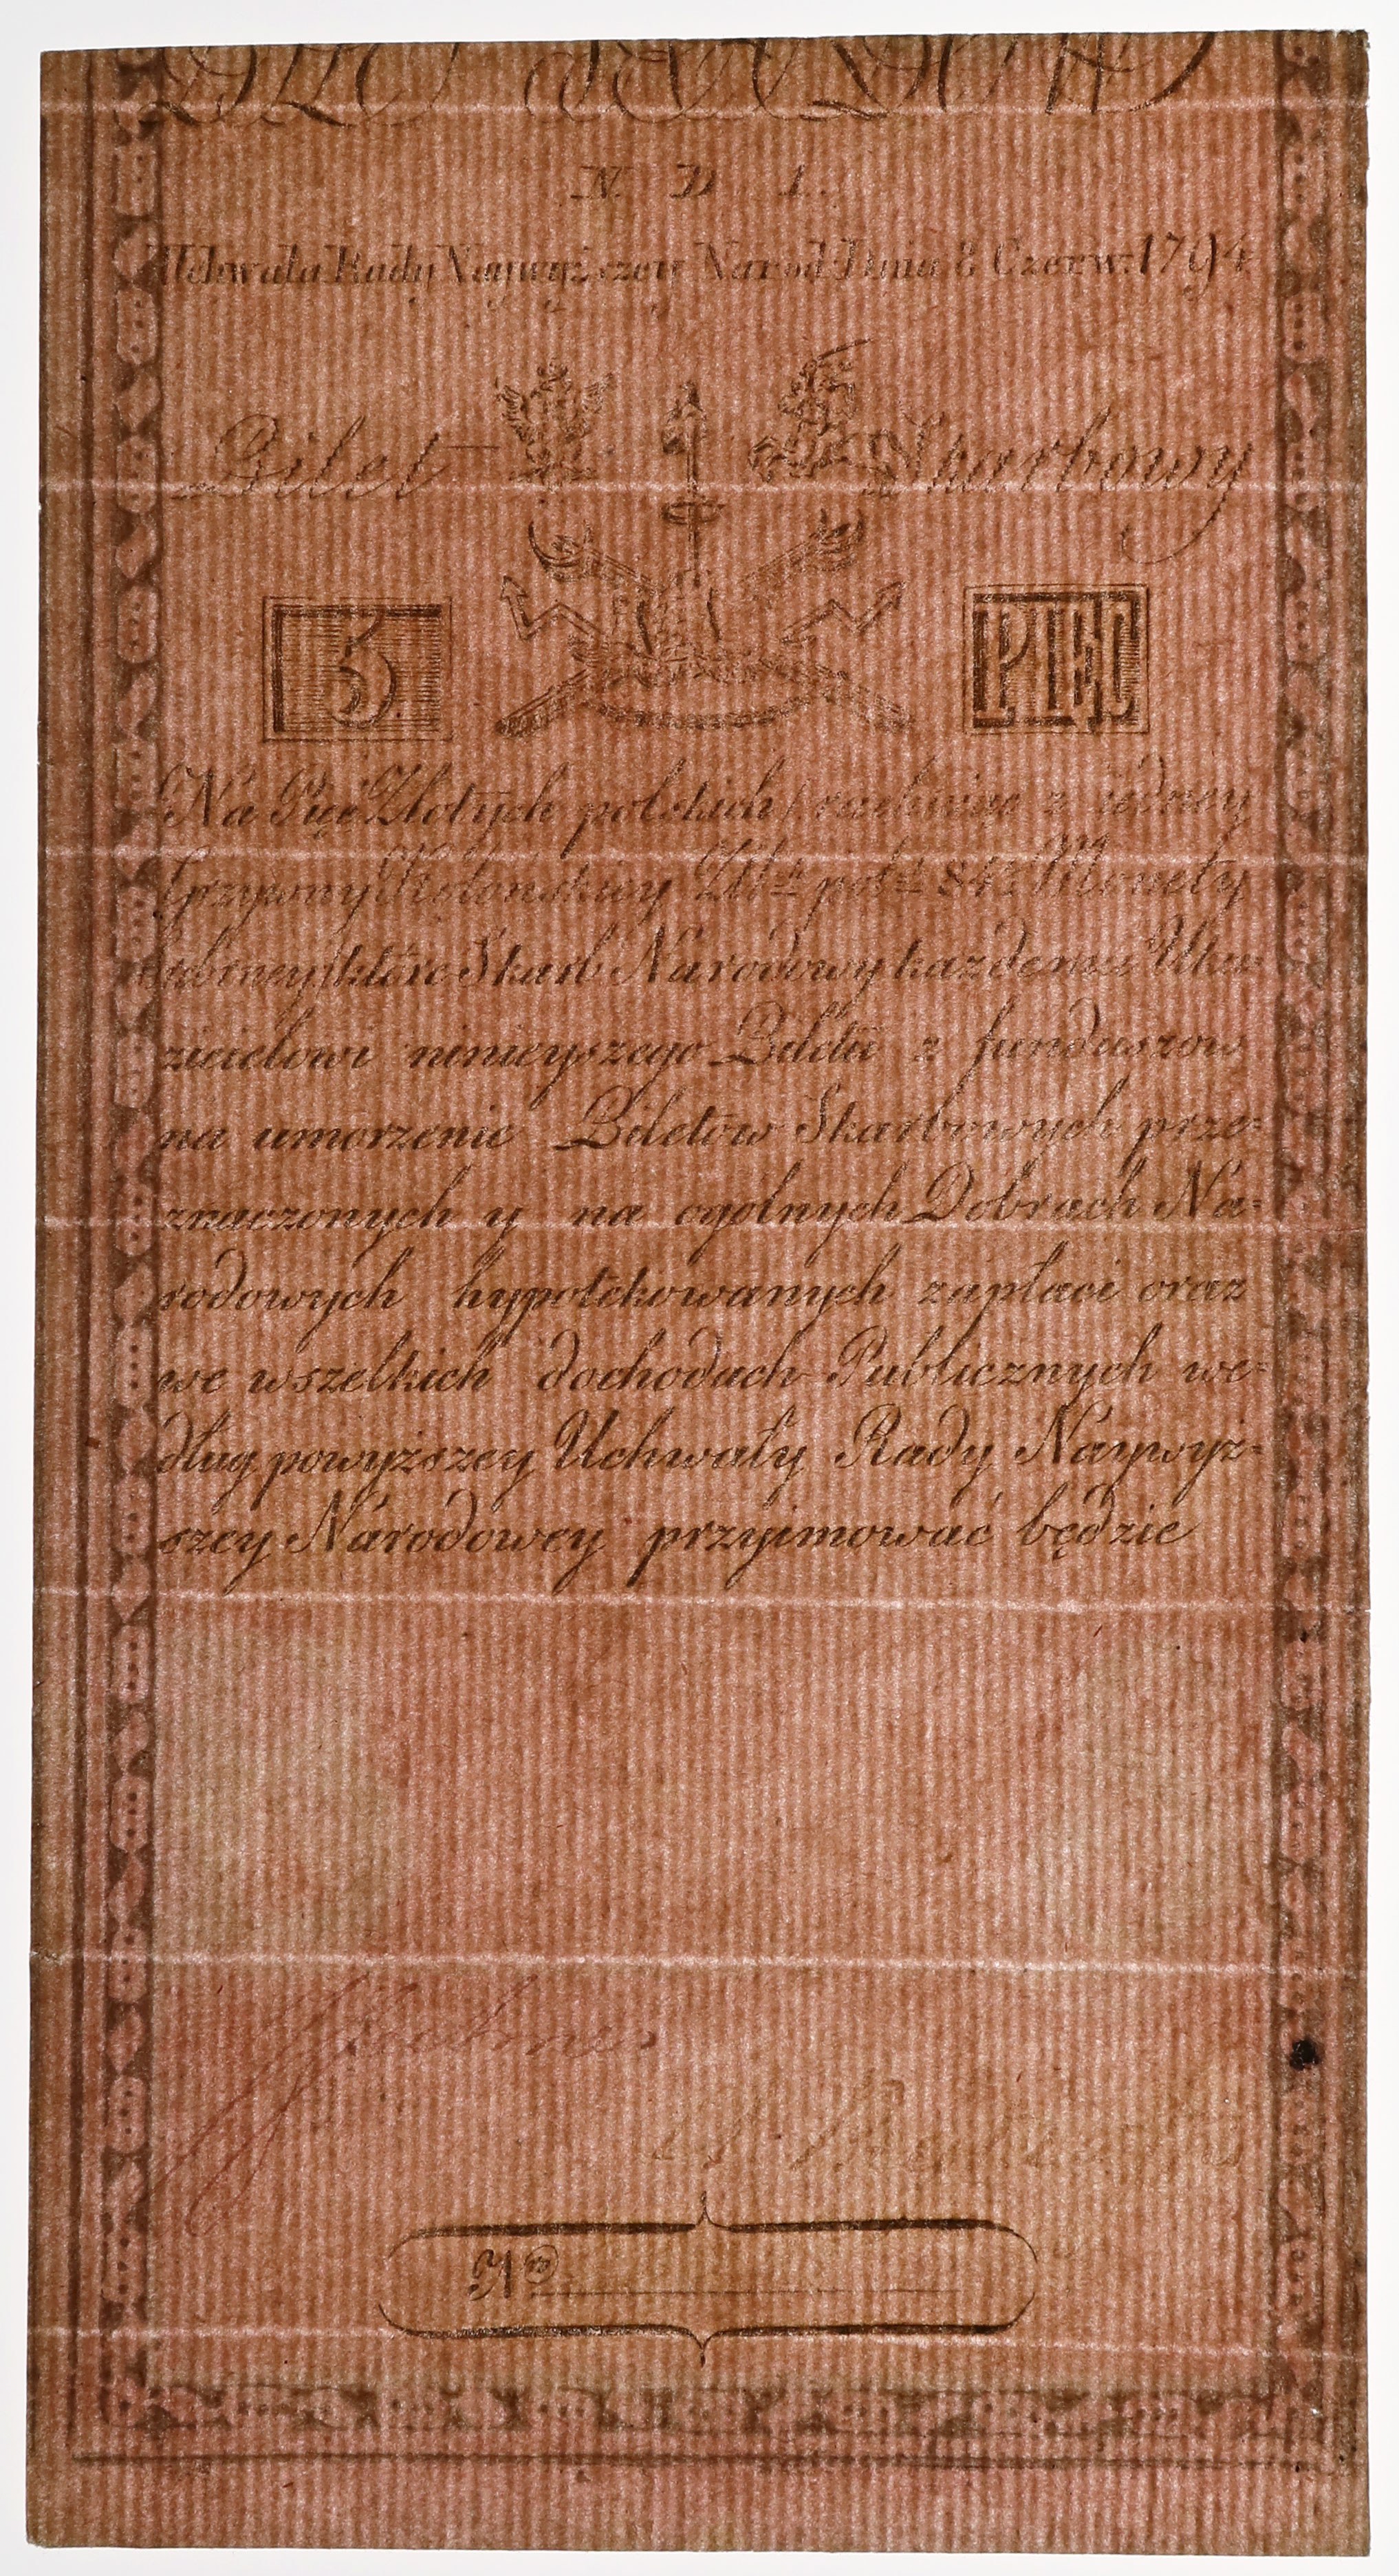 N. D 1.
Uchwała Rady Naywyższey Narod: Dnia 8 Czerw: 1794
Bilet Skarbowy
5 PIĘĆ
Na Pięć Złotych polskich rachuiąc z iedney
Grzywny Kolonskiey Złłch polch 84½ Monety
srebrney które Skarb Narodowy każdemu Uka=
zicielowi ninieyszego Biletu z funduszow
na umorzenie Biletow Skarbowych prze=
znaczonych y na ogolnych Dobrach Na=
rodowych hypotekowanych zapłaci oraz
we wszelkich dochodach Publicznych we=
dług powyższey Uchwały Rady Naywyż=
szey Narodowey przyimować będzie
No